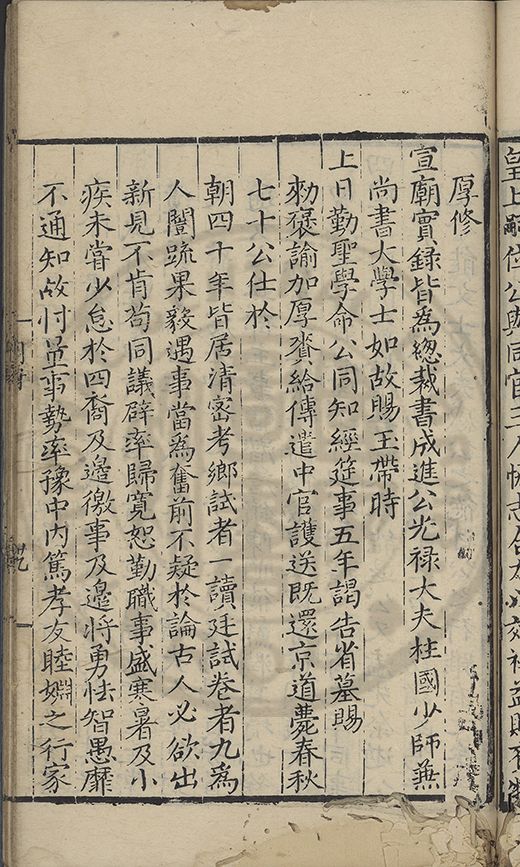 皇上嗣位公與同官三人恊志合
厚修
宣廟實録皆為總裁書成進公光禄大夫柱國少師蕪
尚書大學士如故賜玉帶時
上日勤聖學命公同知經筵事五年謁告省墓賜
勑褒諭加厚賚給傳遣中官護送既還京道薨春秋
七十公仕於
朝四十年皆居清宻考鄉試者一讀廷試卷者九為
人闓踈果毅遇事當為奮前不疑於論古人必欲出
新見不肯茍同議辟率歸寬恕勤職事盛寒暑及小
疾未嘗少怠於四裔及邉徼事及邉將勇怯智愚靡
不通知故忖量事勢率豫中内篤孝友睦婣之行家